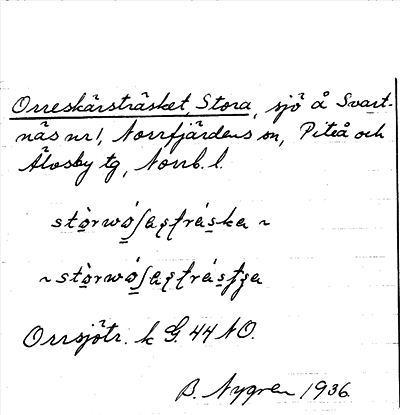 Orreskärsträsket, Stora, sjö å Svart-
näs nr 1, Norrfjärdens sn, Piteå och
Älvsby tg, Norrb. l.
stòrwó̱ʃa̱ʂtrá̱ska ~
~ stòrwó̱ʃa̱ʂtrá̱stʂa
Orrsjötr. k G. 44 NO.
B. Nygren 1936.